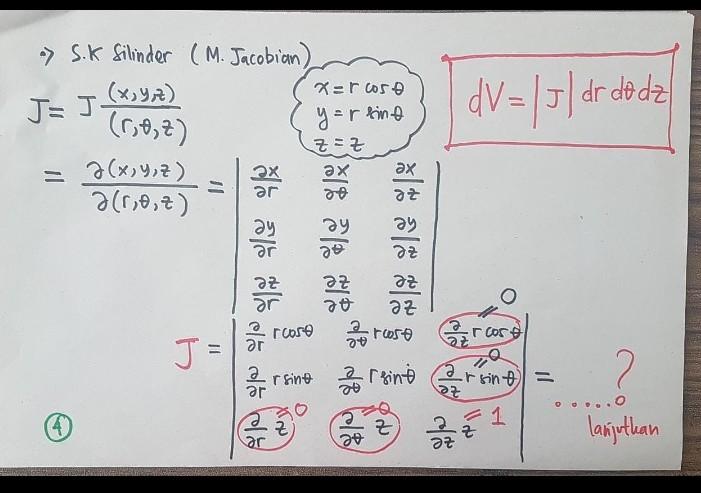 => S.K Silinder (M. Jacobian)
x = r cos θ
y = r sin θ
z = z
dV = |J| dr dθ dz
J = J (x,y,z)/(r,θ,z)
= ∂(x,y,z)/∂(r,θ,z) = | ∂x/∂r ∂x/∂θ ∂x/∂z |
| ∂y/∂r ∂y/∂θ ∂y/∂z |
| ∂z/∂r ∂z/∂θ ∂z/∂z |
J = | ∂/∂r r cosθ ∂/∂θ r cosθ ∂/∂z r cosθ = 0 |
| ∂/∂r r sinθ ∂/∂θ r sinθ ∂/∂z r sinθ = 0 | = ......?
| ∂/∂r z = 0 ∂/∂θ z = 0 ∂/∂z z = 1 |
lanjutkan
4